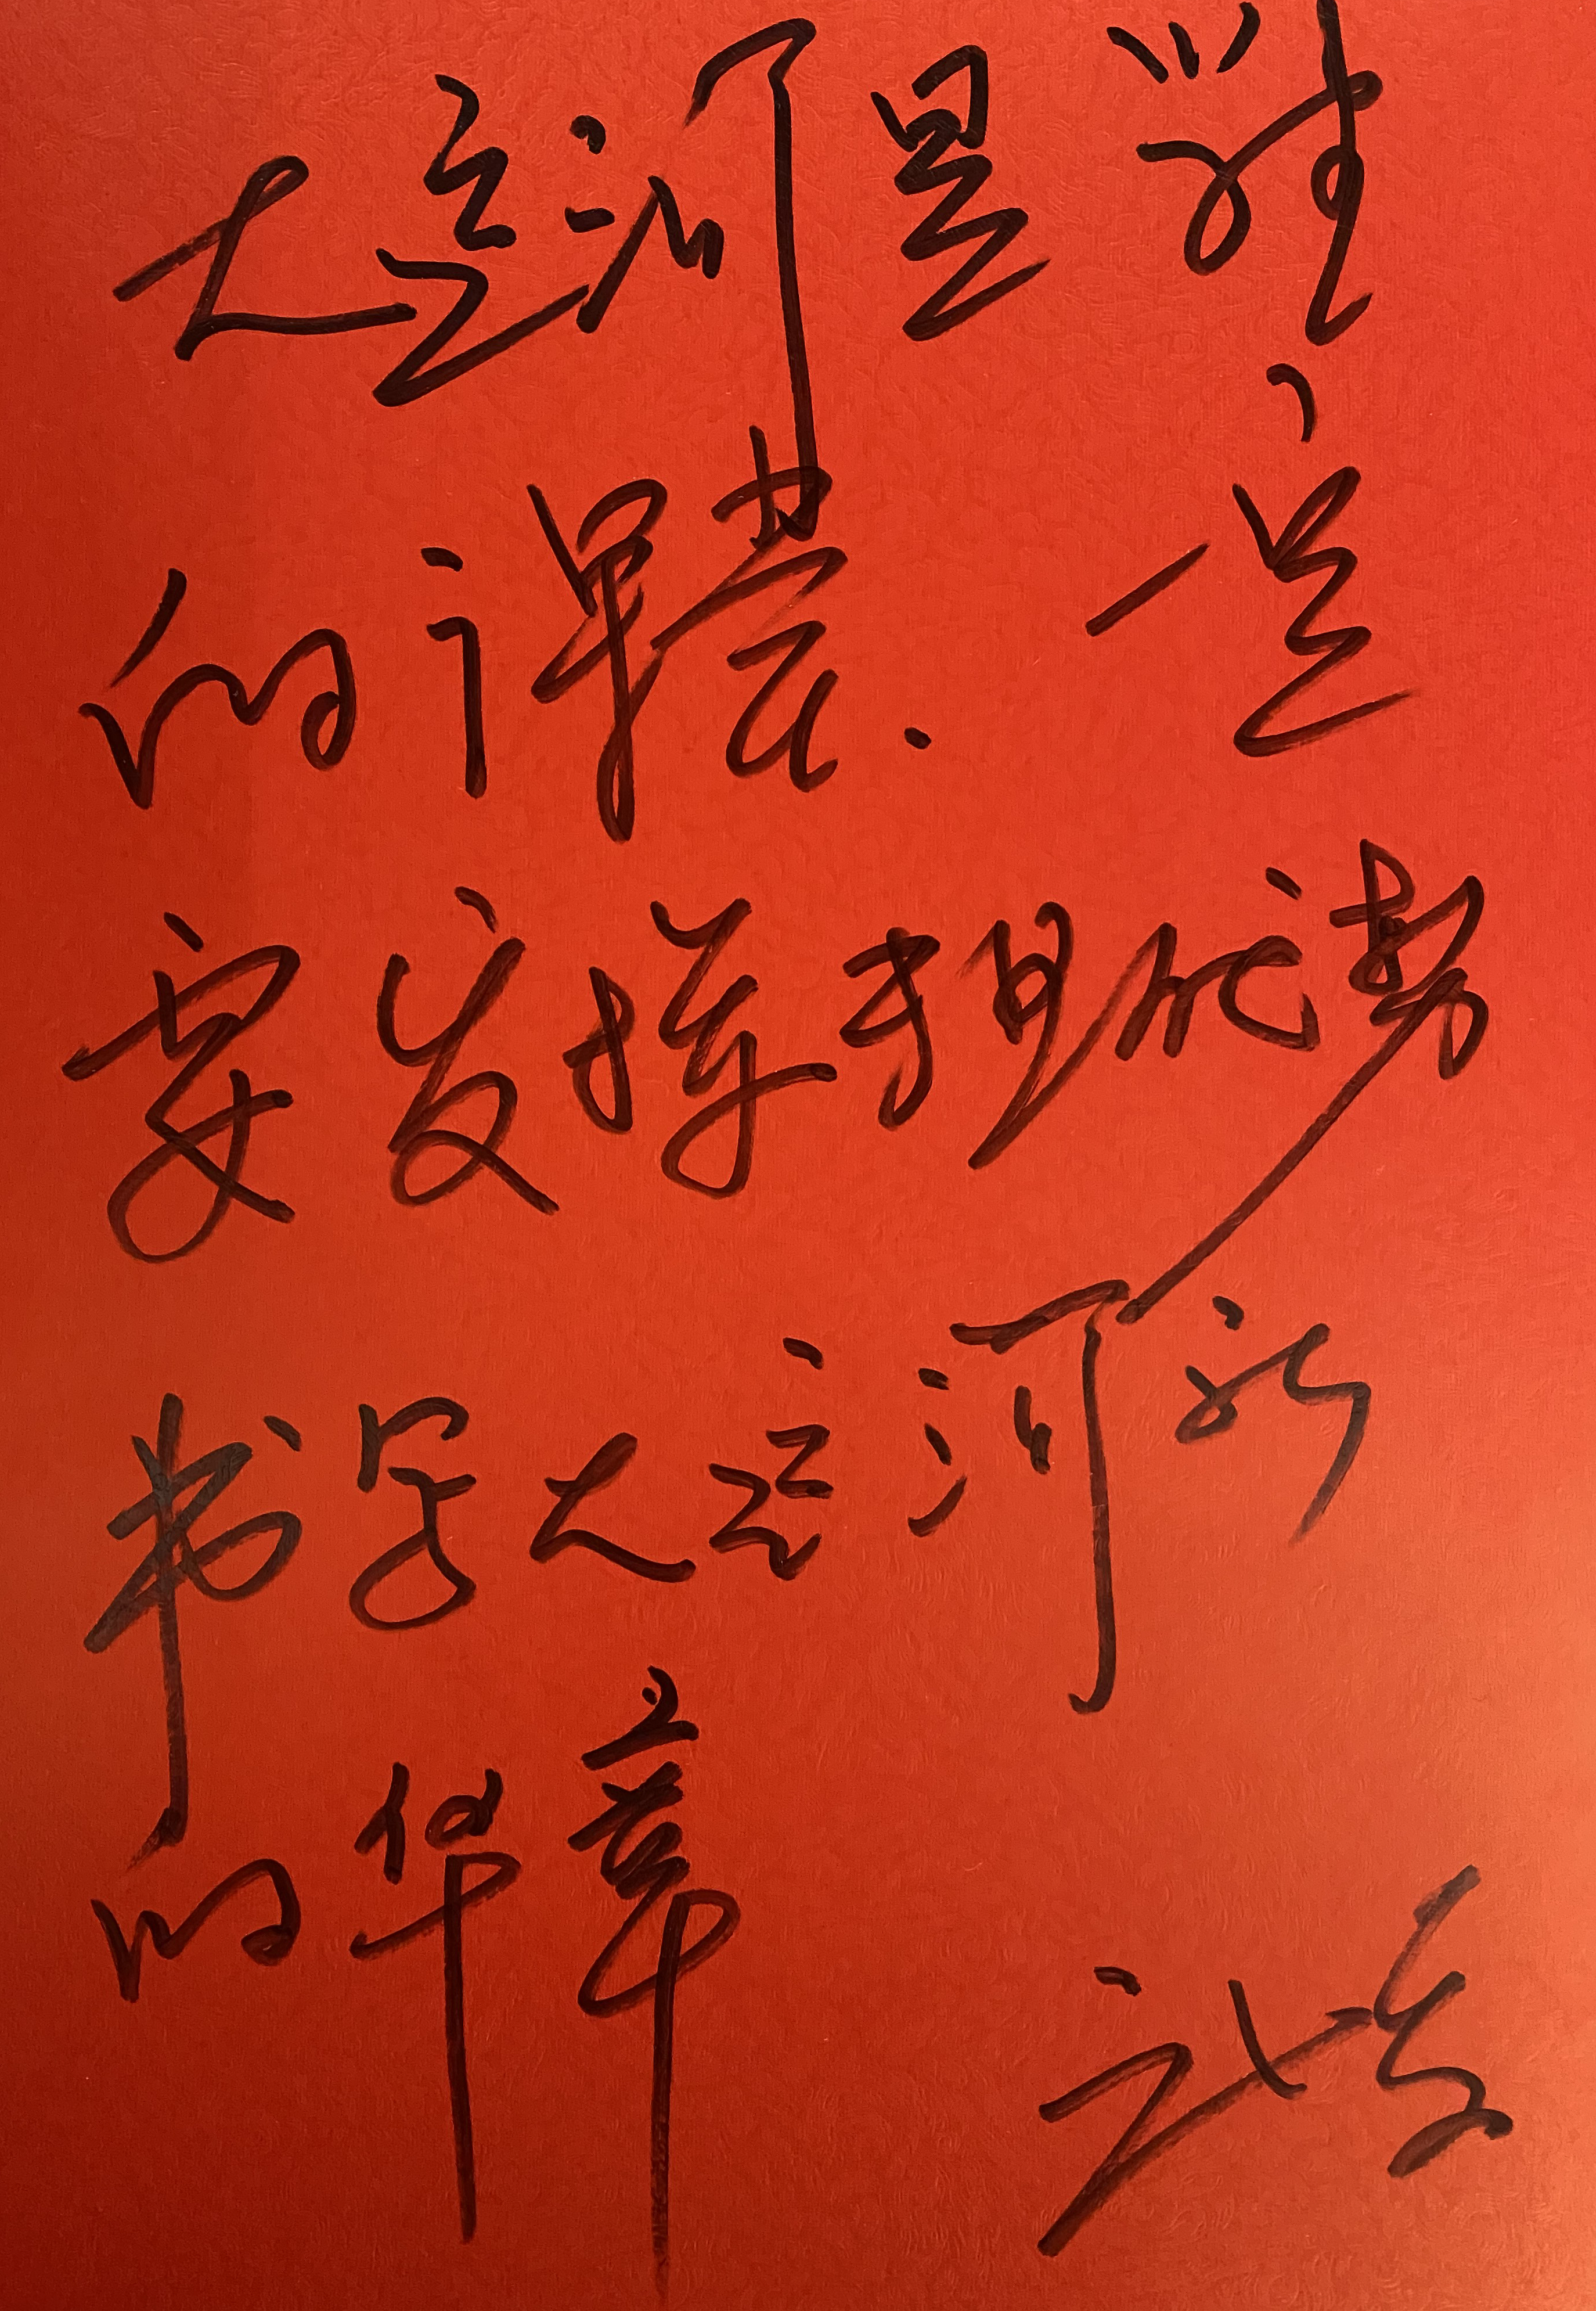 大运河是
的课 一定
要发挥 优势
书写大运河新
的华章